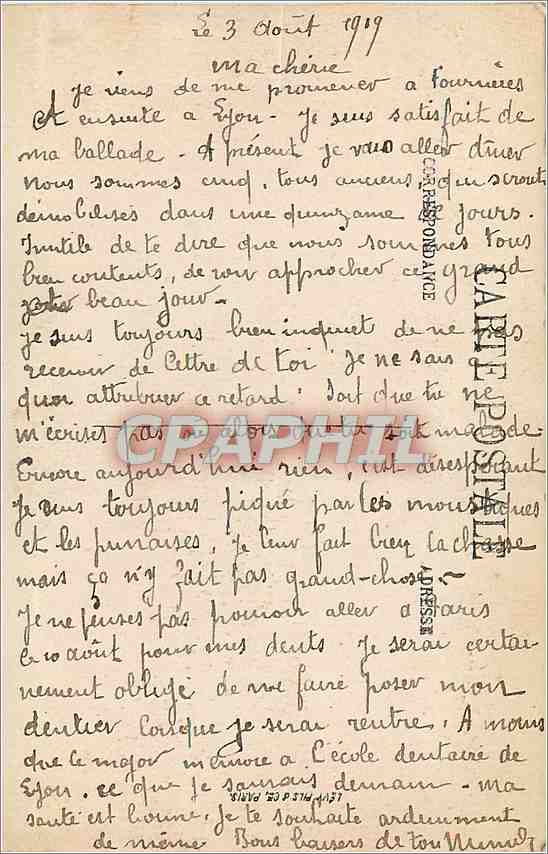 Le 3 Août 1919
ma chérie
Je viens de me promener a Fourvières
et ensuite a Lyon - Je suis satisfait de
ma ballade - A présent je vais aller dîner
nous sommes cinq, tous anciens, qui seront
démobilisés dans une quinzaine de jours.
Inutile de te dire que nous sommes tous
bien contents, de voir approcher ce grand
beau jour -
Je suis toujours bien inquiet de ne pas
recevoir de lettre de toi. Je ne sais a
quoi attribuer ce retard. Soit que tu ne
m'écrises pas ou alors que tu soit malade.
Encore aujourd'hui rien, c'est désespérant
Je suis toujours piqué par les moustiques
et les punaises, je leur fait bien la chasse
mais ça n'y fait pas grand-chose -
Je ne penses pas pouvoir aller a Paris
le 10 août pour mes dents. Je serai certai-
nement obligé de me faire poser mon
dentier lorsque je serai rentré. A moins
que le major m'envoie a l'école dentaire de
Lyon. ce que je saurais demain - ma
santé est bonne. Je te souhaite ardemment
de même Bons baisers de ton
CORRESPONDANCE
CARTE POSTALE
ADRESSE
LEVY FILS & Cie, PARIS
CPAPHIL